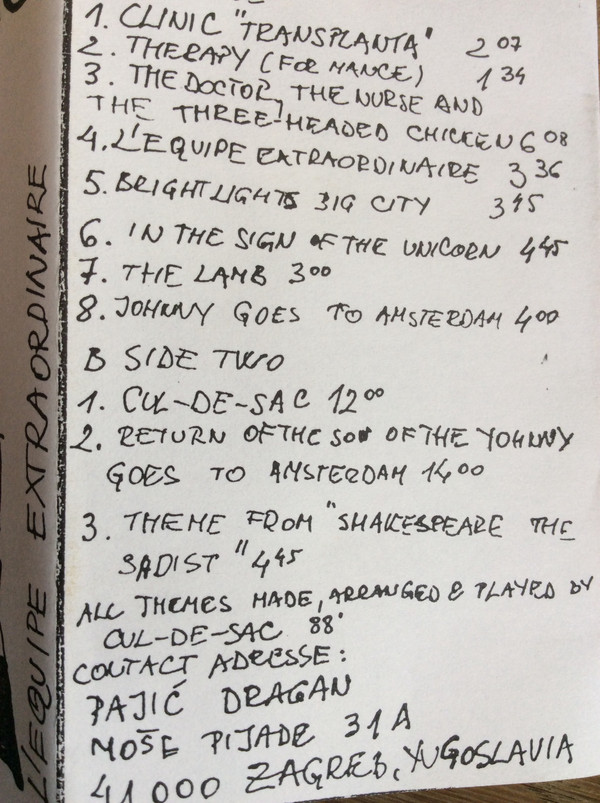 L'EQUIPE EXTRAORDINAIRE
1. CLINIC "TRANSPLANTA" 2 07
2. THERAPY (FOR MANCE) 1 34
3. THE DOCTOR, THE NURSE AND
THE THREE-HEADED CHICKEN 6 08
4. L'EQUIPE EXTRAORDINAIRE 3 36
5. BRIGHT LIGHTS BIG CITY 3 45
6. IN THE SIGN OF THE UNICORN 4 45
7. THE LAMB 3 00
8. JOHNNY GOES TO AMSTERDAM 4 00
B SIDE TWO
1. CUL-DE-SAC 12 00
2. RETURN OF THE SON OF THE YOHNNY
GOES TO AMSTERDAM 14 00
3. THEME FROM "SHAKESPEARE THE
SADIST" 4 45
ALL THEMES MADE, ARRANGED & PLAYED BY
CUL-DE-SAC 88'
CONTACT ADRESSE:
PAJIĆ DRAGAN
MOŠE PIJADE 31A
41000 ZAGREB, YUGOSLAVIA